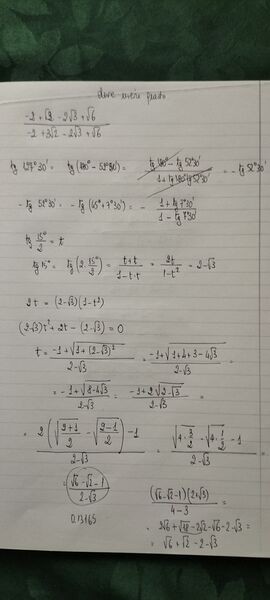 -2 + √2 - 2√3 + √6
-2 + 3√2 - 2√3 + √6
tg 127°30' = tg (180° - 52°30') = tg 180° - tg 52°30' / 1 + tg 180° tg 52°30' = - tg 52°30'
- tg 52°30' = - tg (45° + 7°30') = - 1 + tg 7°30' / 1 - tg 7°30'
tg 15°/2 = t
tg 15° = tg (2 · 15°/2) = t+t / 1-t·t = 2t / 1-t² = 2-√3
2t = (2-√3)(1-t²)
(2-√3)t² + 2t - (2-√3) = 0
t = -1 + √(1 + (2-√3)²) / 2-√3 = -1 + √(1+4+3-4√3) / 2-√3 =
= -1 + √(8-4√3) / 2-√3 = -1 + 2√(2-√3) / 2-√3 =
= 2(√((2+1)/2) - √((2-1)/2)) - 1 / 2-√3 = √(4·3/2) - √(4·1/2) - 1 / 2-√3 =
= √6 - √2 - 1 / 2-√3
(√6-√2-1)(2+√3) / 4-3 =
0.13165
= 2√6 + √18 - 2√2 - √6 - 2 - √3 =
= √6 + √2 - 2 - √3